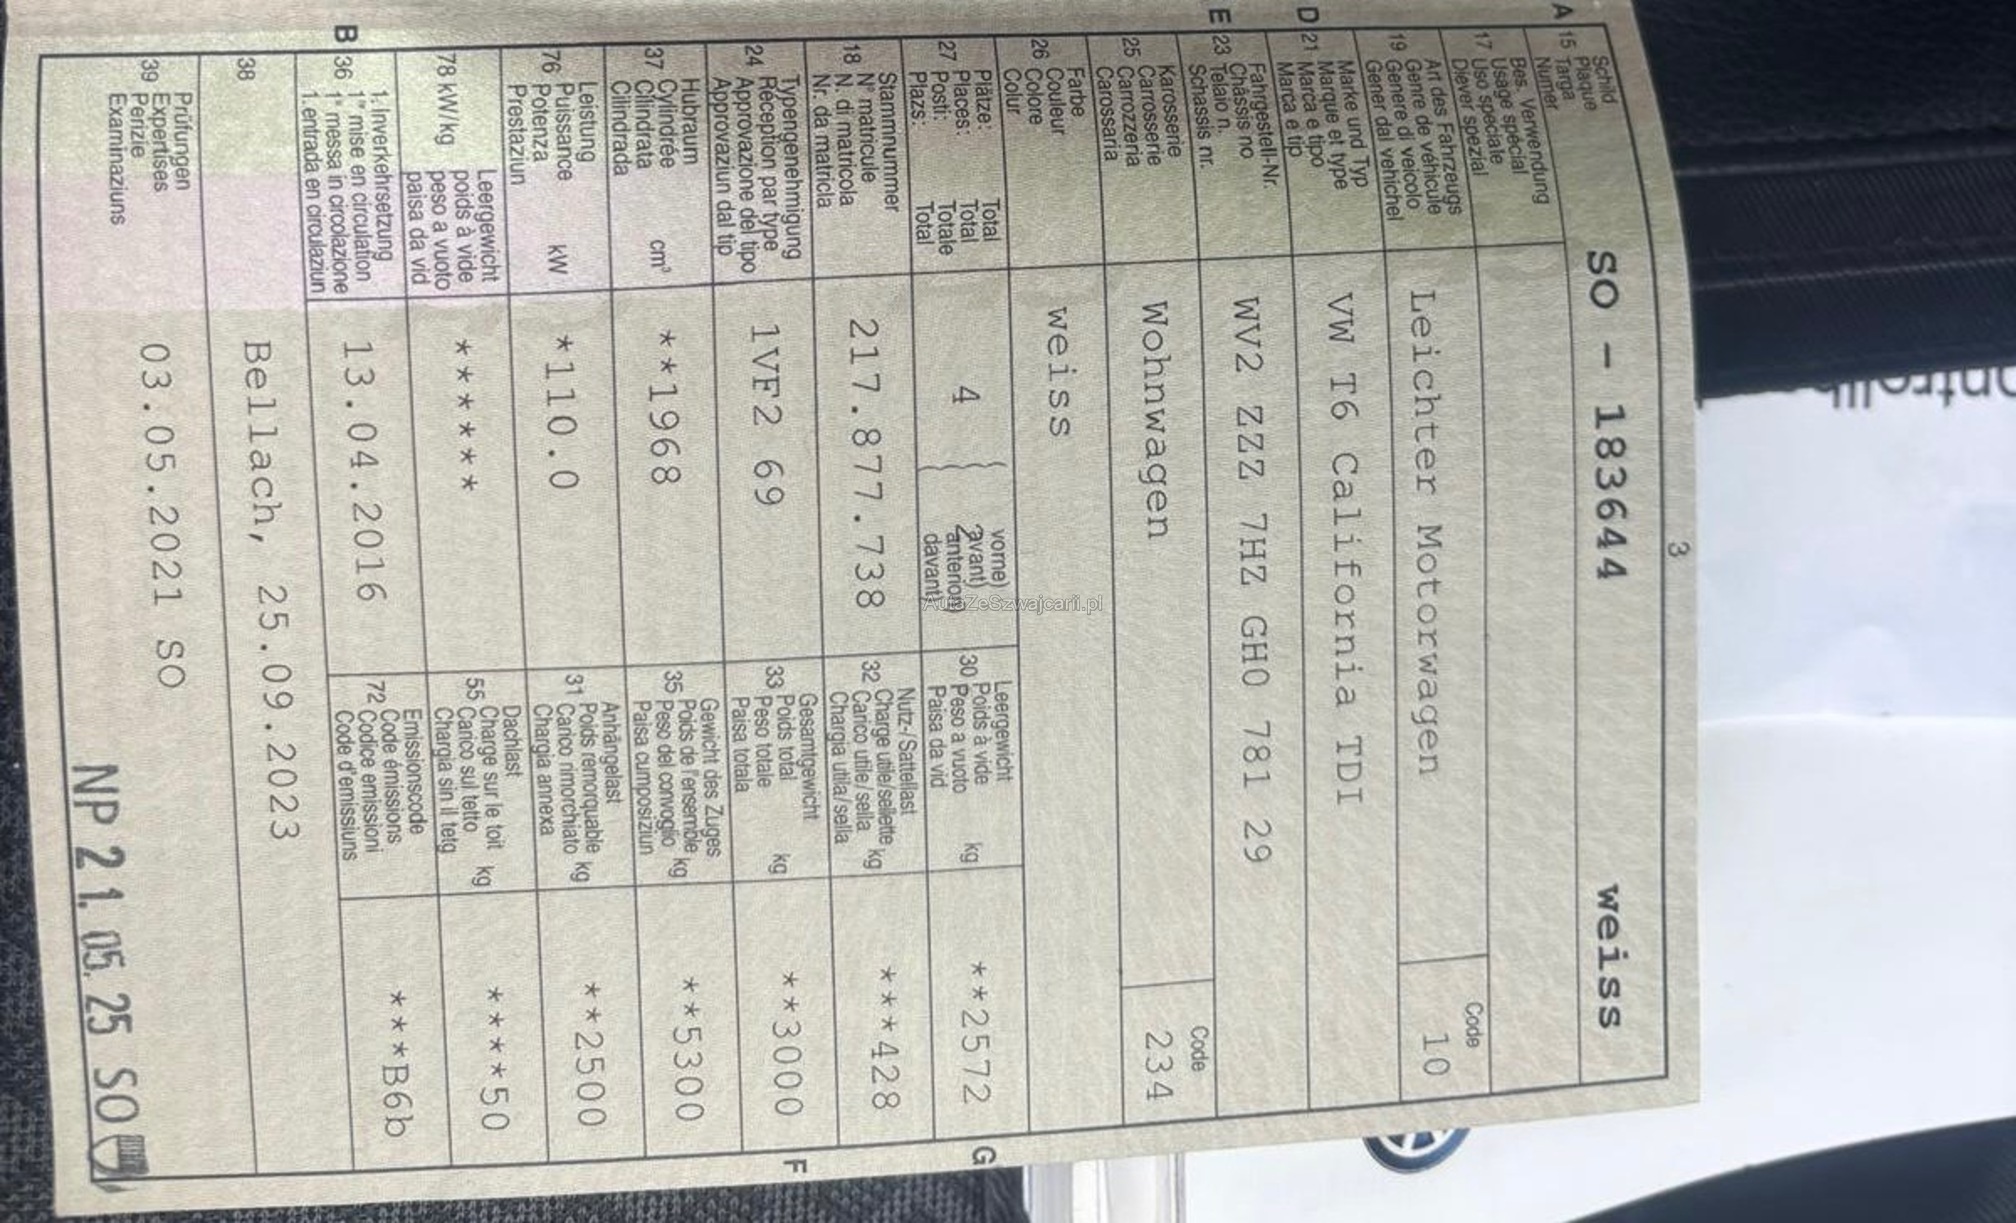 3
A 15 Schild Plaque Targa Numer SO - 183644 weiss
17 Bes. Verwendung
Usage spécial
Uso speciale
Diever spezial
19 Art des Fahrzeugs
Genre de véhicule
Genere di veicolo
Gener dal vehichel
Leichter Motorwagen
Code
10
D 21 Marke und Typ
Marque et type
Marca e tipo
Marca e tip
VW T6 California TDI
E 23 Fahrgestell-Nr.
Châssis no
Telaio n.
Schassis nr.
WV2 ZZZ 7HZ GH0 781 29
25 Karosserie
Carrosserie
Carrozzeria
Carossaria
Wohnwagen
Code
234
26 Farbe
Couleur
Colore
Colur
weiss
27 Plätze: Total
Places: Total
Posti: Totale
Plazs: Total
4
vorne)
avant)
anteriori)
davant)
2
30 Leergewicht
Poids à vide
Peso a vuoto
Paisa da vid
kg
**2572 G
18 Stammnummer
N° matricule
N. di matricola
Nr. da matricla
217.877.738
32 Nutz-/Sattellast
Charge utile/sellette
Carico utile/sella
Chargia utila/sella
kg
***428
24 Typengenehmigung
Réception par type
Approvazione del tipo
Approvaziun dal tip
1VF2 69
33 Gesamtgewicht
Poids total
Peso totale
Paisa totala
kg
**3000 F
37 Hubraum
Cylindrée
Cilindrata
Cilindrada
cm³
**1968
35 Gewicht des Zuges
Poids de l'ensemble
Peso del convoglio
Paisa cumposiziun
kg
**5300
76 Leistung
Puissance
Potenza
Prestaziun
kW
*110.0
31 Anhängelast
Poids remorquable
Carico rimorchiato
Chargia annexa
kg
**2500
78 kW/kg
Leergewicht
poids à vide
peso a vuoto
paisa da vid
*******
55 Dachlast
Charge sur le toit
Carico sul tetto
Chargia sin il tetg
kg
****50
B 36 1. Inverkehrsetzung
1re mise en circulation
1a messa in circolazione
1. entrada en circulaziun
13.04.2016
72 Emissionscode
Code émissions
Codice emissioni
Code d'emissiuns
***B6b
38
Bellach, 25.09.2023
39 Prüfungen
Expertises
Perizie
Examinaziuns
03.05.2021 SO
NP 21. 05. 25 SO
AutaZeSzwajcarii.pl